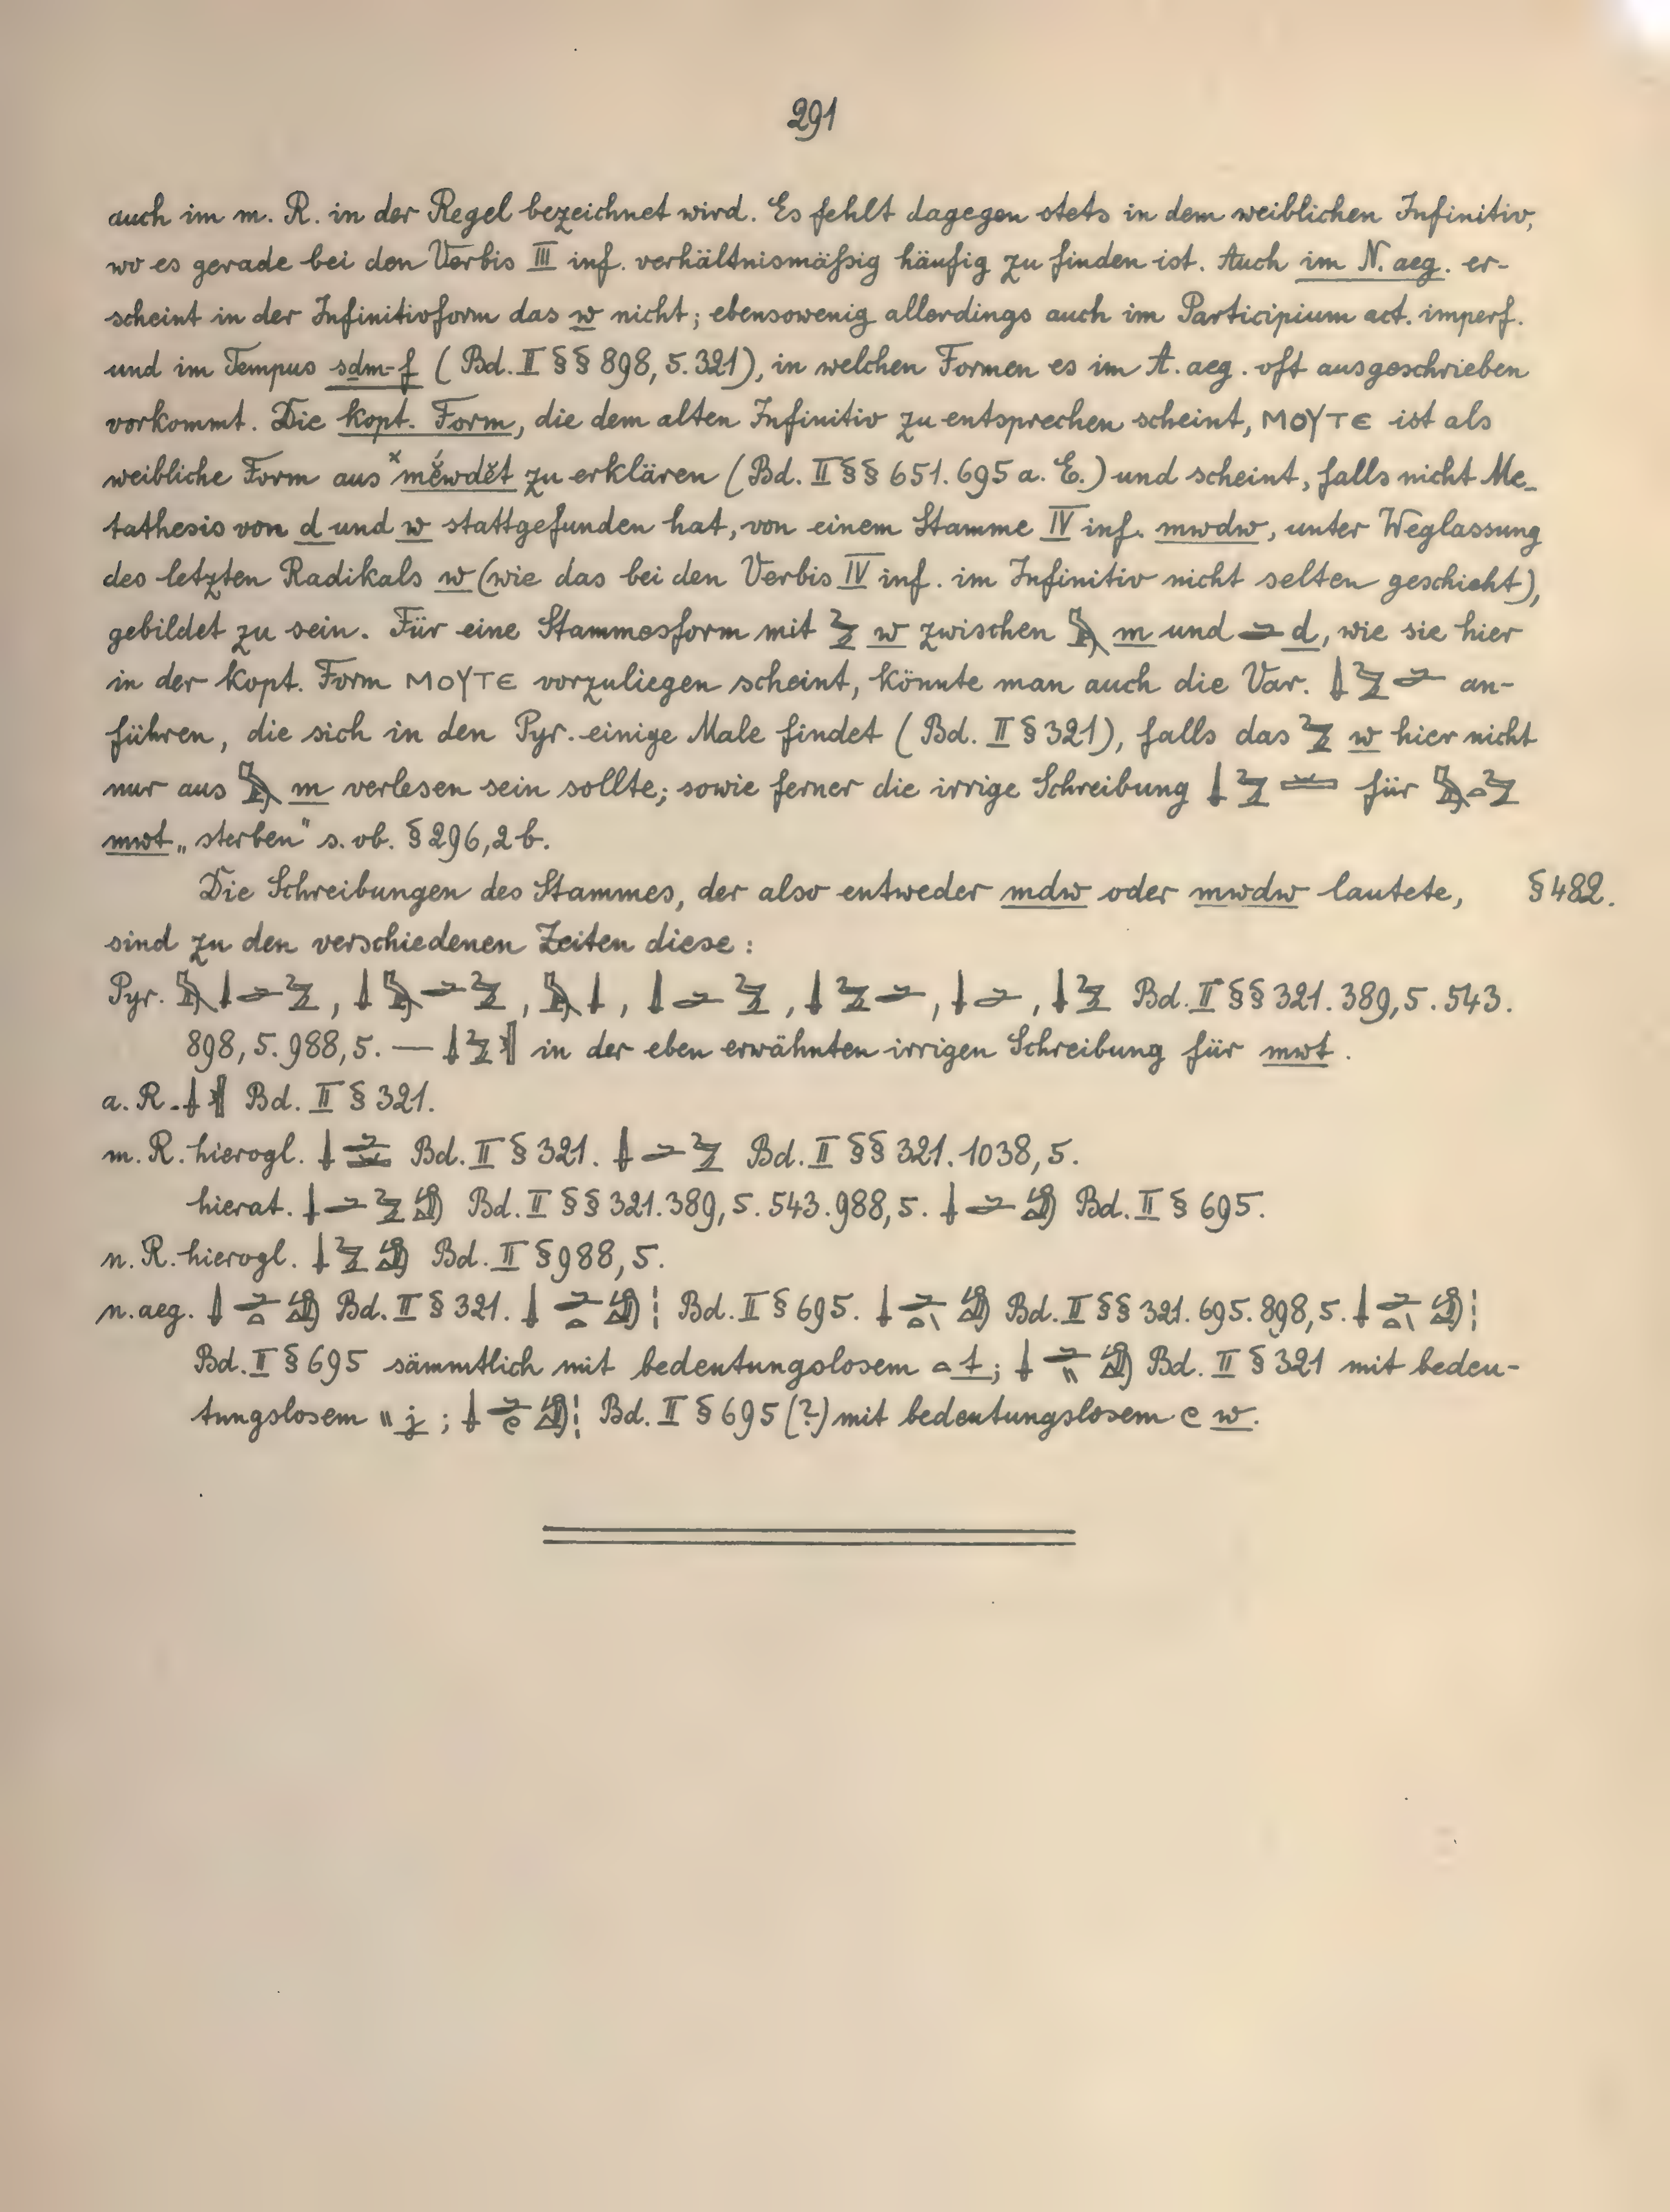 291
auch im m. R. in der Regel bezeichnet wird. Es fehlt dagegen stets in dem weiblichen Infinitiv,
wo es gerade bei den Verbis III inf. verhältnismäßig häufig zu finden ist. Auch im N. aeg. er-
scheint in der Infinitivform das w nicht; ebensowenig allerdings auch im Participium act. imperf.
und im Tempus sdm-f (Bd. II §§ 898, 5. 321), in welchen Formen es im A. aeg. oft ausgeschrieben
vorkommt. Die kopt. Form, die dem alten Infinitiv zu entsprechen scheint, ⲘⲞⲨⲦⲈ ist als
weibliche Form aus ˣmĕ́wdĕt zu erklären (Bd. II §§ 651. 695 a. E.) und scheint, falls nicht Me-
tathesis von d und w stattgefunden hat, von einem Stamme IV inf. mwdw, unter Weglassung
des letzten Radikals w (wie das bei den Verbis IV inf. im Infinitiv nicht selten geschieht),
gebildet zu sein. Für eine Stammesform mit 𓅱 w zwischen 𓅓 m und 𓂧 d, wie sie hier
in der kopt. Form ⲘⲞⲨⲦⲈ vorzuliegen scheint, könnte man auch die Var. 𓌃𓅱𓂧 an-
führen, die sich in den Pyr. einige Male findet (Bd. II § 321), falls das 𓅱 w hier nicht
nur aus 𓅓 m verlesen sein sollte; sowie ferner die irrige Schreibung 𓌃𓅱 für 𓅓𓏏𓅱
mwt „sterben" s. ob. § 296, 2 b.
Die Schreibungen des Stammes, der also entweder mdw oder mwdw lautete, § 482.
sind zu den verschiedenen Zeiten diese:
Pyr. 𓅓𓌃𓂧𓅱, 𓌃𓅓𓂧𓅱, 𓅓𓌃, 𓌃𓂧𓅱, 𓌃𓅱𓂧, 𓌃𓂧, 𓌃𓅱 Bd. II §§ 321. 389, 5. 543.
898, 5. 988, 5. — 𓌃𓅱 in der eben erwähnten irrigen Schreibung für mwt.
a. R. 𓌃 Bd. II § 321.
m. R. hierogl. 𓌃𓂧 Bd. II § 321. 𓌃𓂧𓅱 Bd. II §§ 321. 1038, 5.
hierat. 𓌃𓂧𓅱𓀁 Bd. II §§ 321. 389, 5. 543. 988, 5. 𓌃𓂧𓀁 Bd. II § 695.
n. R. hierogl. 𓌃𓅱𓀁 Bd. II § 988, 5.
n. aeg. 𓌃𓂧𓏏𓀁 Bd. II § 321. 𓌃𓂧𓏏𓀁𓏥 Bd. II § 695. 𓌃𓂧𓏏𓏭𓀁 Bd. II §§ 321. 695. 898, 5. 𓌃𓂧𓏏𓏭𓀁𓏥
Bd. II § 695 sämmtlich mit bedeutungslosem 𓏏 t; 𓌃𓂧𓏭𓀁 Bd. II § 321 mit bedeu-
tungslosem 𓏭 j; 𓌃𓂧𓏲𓀁𓏥 Bd. II § 695 (?) mit bedeutungslosem 𓏲 w.